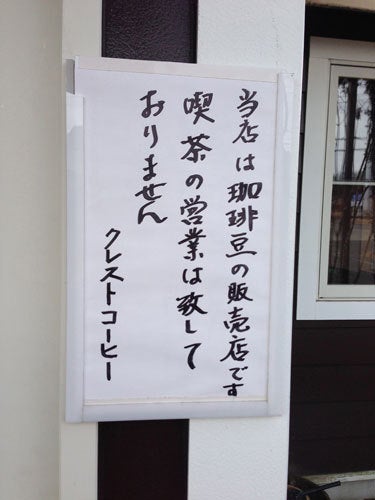 当店は珈琲豆の販売店です
喫茶の営業は致して
おりません
クレストコーヒー